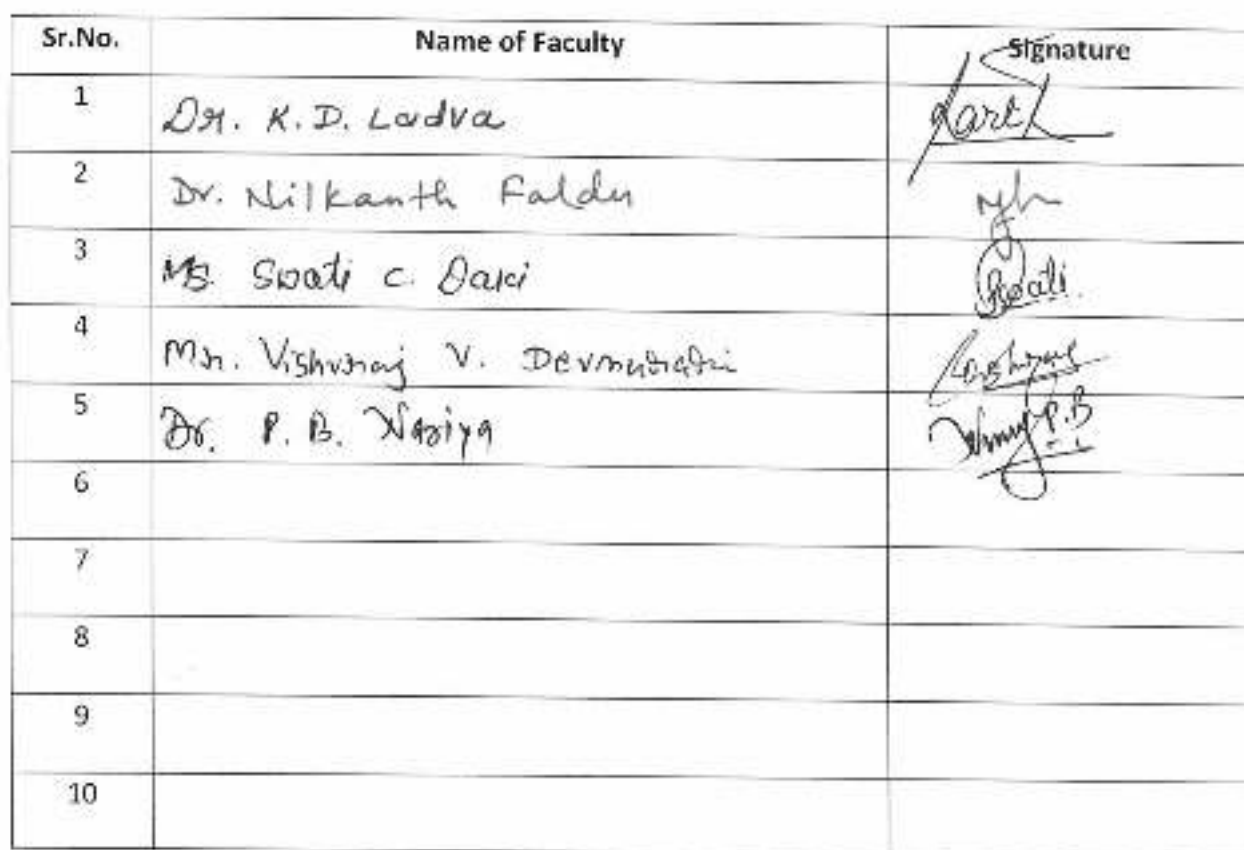 Sr.No. Name of Faculty Signature
1 Dr. K.D. Ladva
2 Dr. Nilkanth Faldu
3 Ms. Swati C. Daki Swati.
4 Mr. Vishvraj V.
5 Dr. P. B. Naziya P.B
6
7
8
9
10